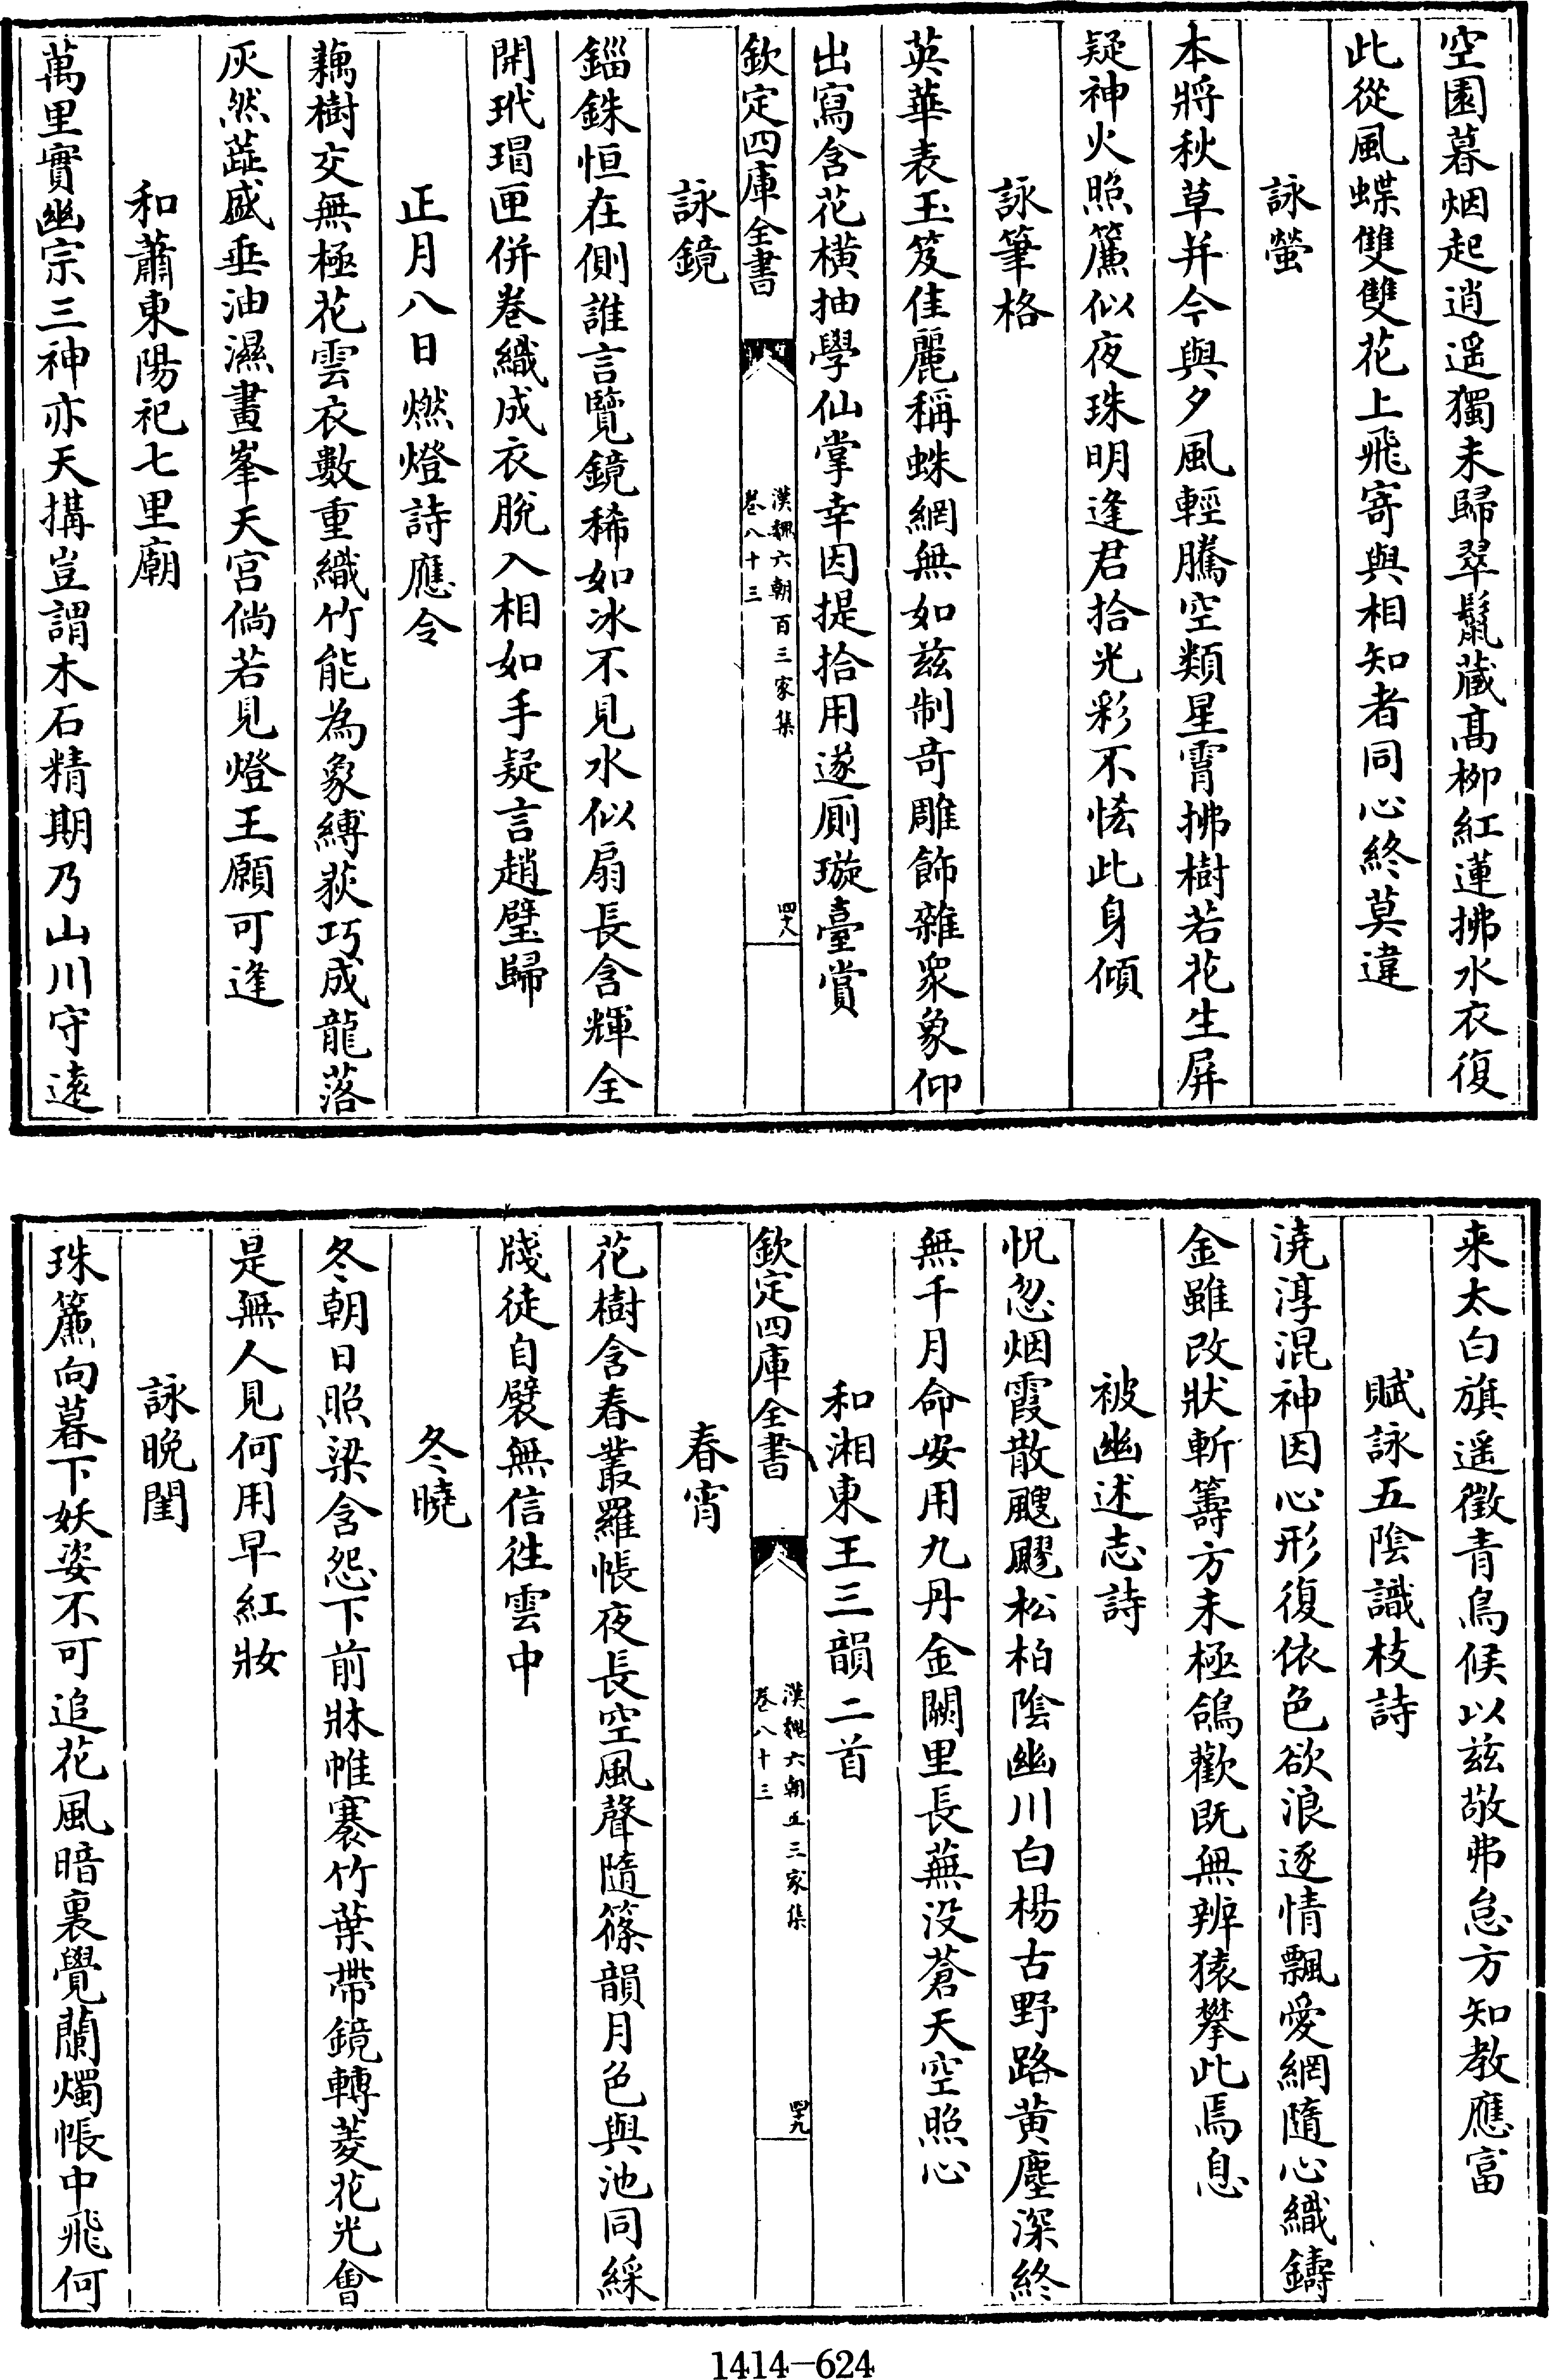 空園暮烟起逍遥獨未歸翠鬛蔵髙栁紅蓮拂水衣復
此從風蝶雙雙花上飛寄與相知者同心終莫違
詠螢
本將秋草并今與夕風輕騰空類星霄拂樹若花生屏
疑神火照簾似夜珠明逢君拾光彩不恡此身傾
詠筆格
英華表玉笈佳麗稱蛛網無如兹制奇雕飾雜衆象仰
出寫含花横抽學仙掌幸因提拾用遂厠璇臺賞
欽定四庫全書
漢魏六朝百三家集
卷八十三
四十八
詠鏡
錙銖恒在側誰言覽鏡稀如冰不見水似扇長含輝全
開玳瑁匣併卷織成衣脱入相如手疑言趙璧歸
正月八日燃燈詩應令
藕樹交無極花雲衣數重織竹能為象縛荻巧成龍落
灰然蕋盛垂油濕畫峯天宫倘若見燈王願可逢
和蕭東陽祀七里廟
萬里實幽宗三神亦天搆豈謂木石精期乃山川守遠
来太白旗遥徵青鳥候以兹敬弗怠方知教應富
賦詠五陰識枝詩
澆淳混神因心形復依色欲浪逐情飄愛網隨心織鑄
金雖改狀斬籌方未極鴿歡既無辨猿攀此焉息
被幽述志詩
怳忽烟霞散颼飀松柏陰幽川白楊古野路黄塵深終
無千月命安用九丹金闕里長蕪没蒼天空照心
和湘東王三韻二首
欽定四庫全書
漢魏六朝百三家集
卷八十三
四十九
春宵
花樹含春叢羅帳夜長空風聲隨篠韻月色與池同綵
牋徒自襞無信徃雲中
冬曉
冬朝日照梁含怨下前牀帷褰竹葉帶鏡轉菱花光會
是無人見何用早紅妝
詠晩閨
珠簾向暮下妖姿不可追花風暗裏覺蘭燭帳中飛何
1414—624